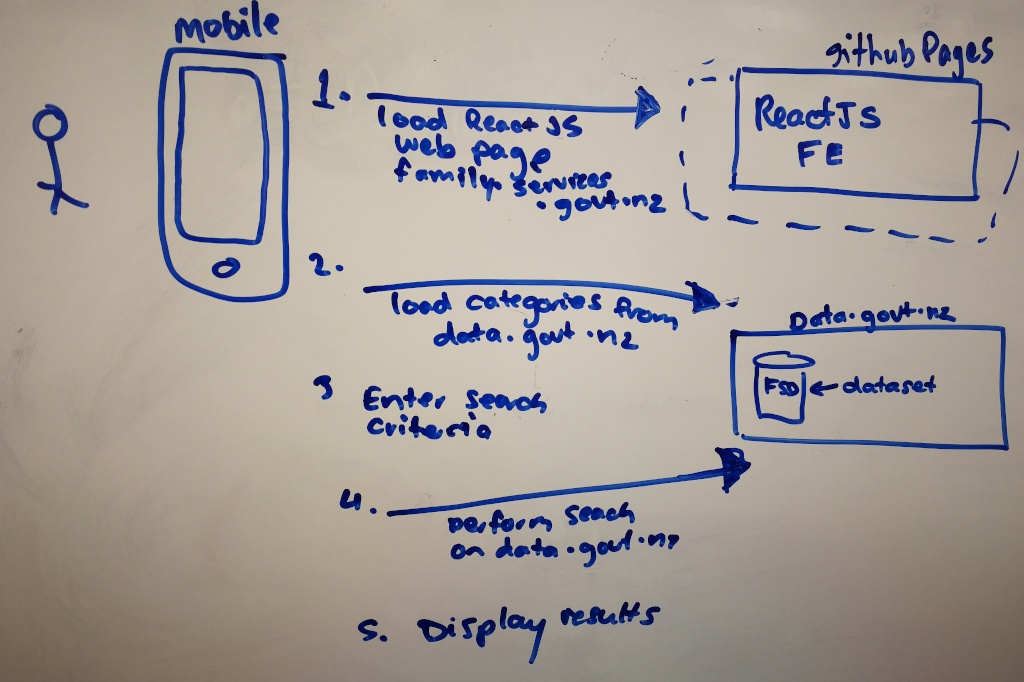 mobile
github Pages
1.
load React JS
web page
family.services
.govt.nz
ReactJS
FE
2.
load categories from
data.govt.nz
Data.govt.nz
FSD ← dataset
3 Enter search
criteria
4.
perform seach
on data.govt.nz
5. Display results